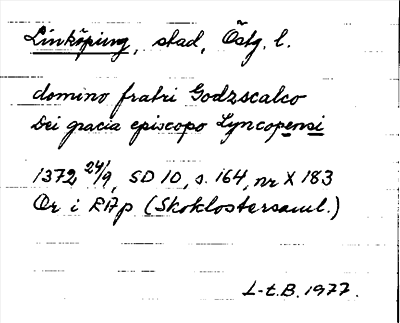 Linköping, stad, Östg. l.
domino fratri Godzscalco
Dei gracia episcopo Lyncopensi
1372 24/9, SD 10, s. 164, nr X 183
Or i RAp (Skoklostersaml.)
L-t.B. 1977.